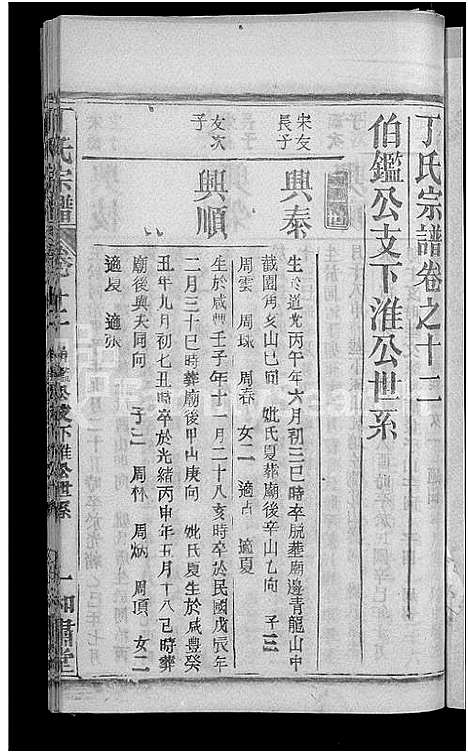 丁氏宗譜卷之十二
伯鑑公支下淮公世系
宋友長子
興秦
生於道光丙午年六月初三巳時卒脫葬廟邊青龍山中
截園角亥山巳向 妣氏夏葬廟後辛山乙向 子三
周雲 周球 周春 女二 適占 適夏
友次子
興順
生於咸豐壬子年十一月二十八亥時卒於民國戊辰年
二月三十巳時葬廟後甲山庚向 妣氏夏生於咸豐癸
丑年九月初七丑時卒於光緒丙申年五月十八巳時葬
廟後與夫同向 子三 周林 周炳 周頂 女二
適晟 適張
丁氏宗譜
卷十二
鑑公支下淮公世系
一
和肅堂